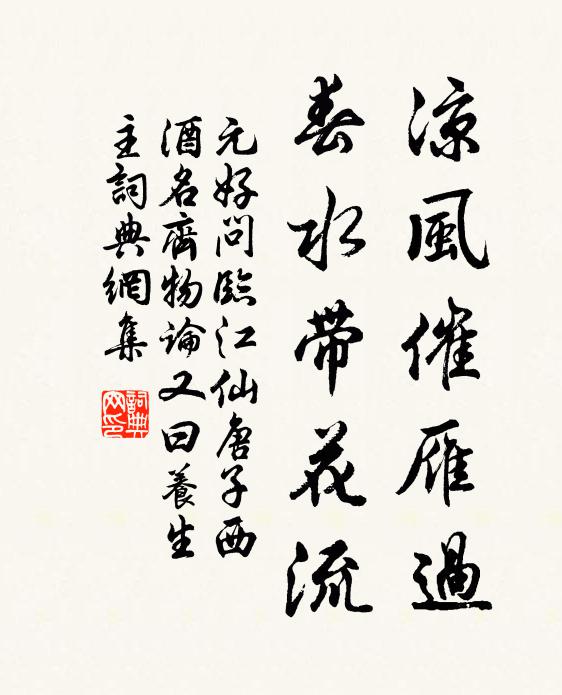 涼風催雁過
春水帶花流
元好問臨江仙唐子西
酒名齊物論又曰養生
主詞典網集
詞典
网印